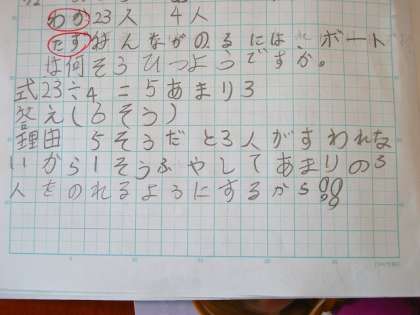 わか 23人 4人
たず ぜんいんがのるには ボート
は何そうひつようですか。
式23÷4=5あまり3
答え(6そう)
理由 5そうだと3人がすわれな
いから1そうふやしてあまりの3
人をのれるようにするから。